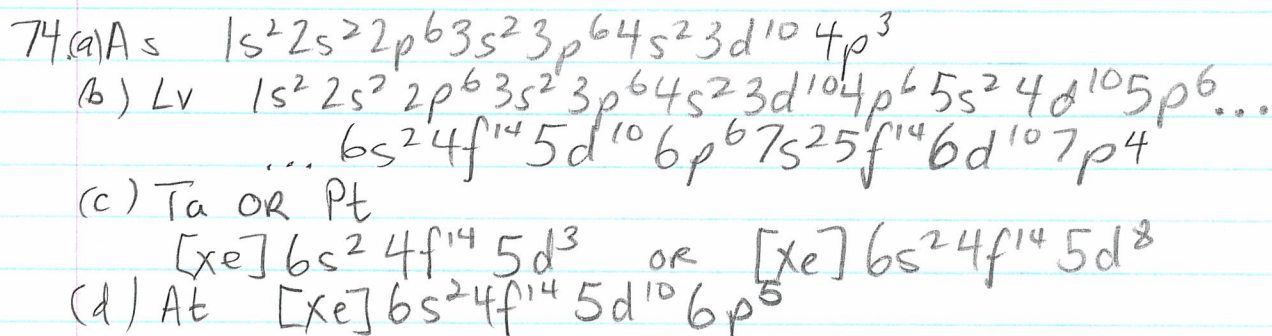 74.(a) As 1s²2s²2p⁶3s²3p⁶4s²3d¹⁰4p³
(b) Lv 1s²2s²2p⁶3s²3p⁶4s²3d¹⁰4p⁶5s²4d¹⁰5p⁶...
... 6s²4f¹⁴5d¹⁰6p⁶7s²5f¹⁴6d¹⁰7p4
(c) Ta OR Pt
[Xe]6s²4f¹⁴5d³ OR [Xe]6s²4f¹⁴5d⁸
(d) At [Xe]6s²4f¹⁴5d¹⁰6p⁵